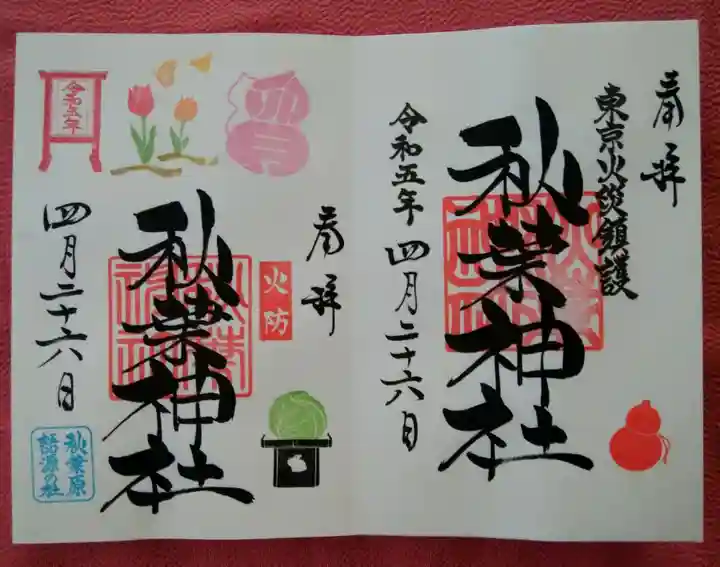 奉拝
東京火災鎮護
秋葉神社
令和五年 四月二十六日
奉拝
火防
秋葉神社
令和五年
四月
四月二十六日
秋葉原
語源の社